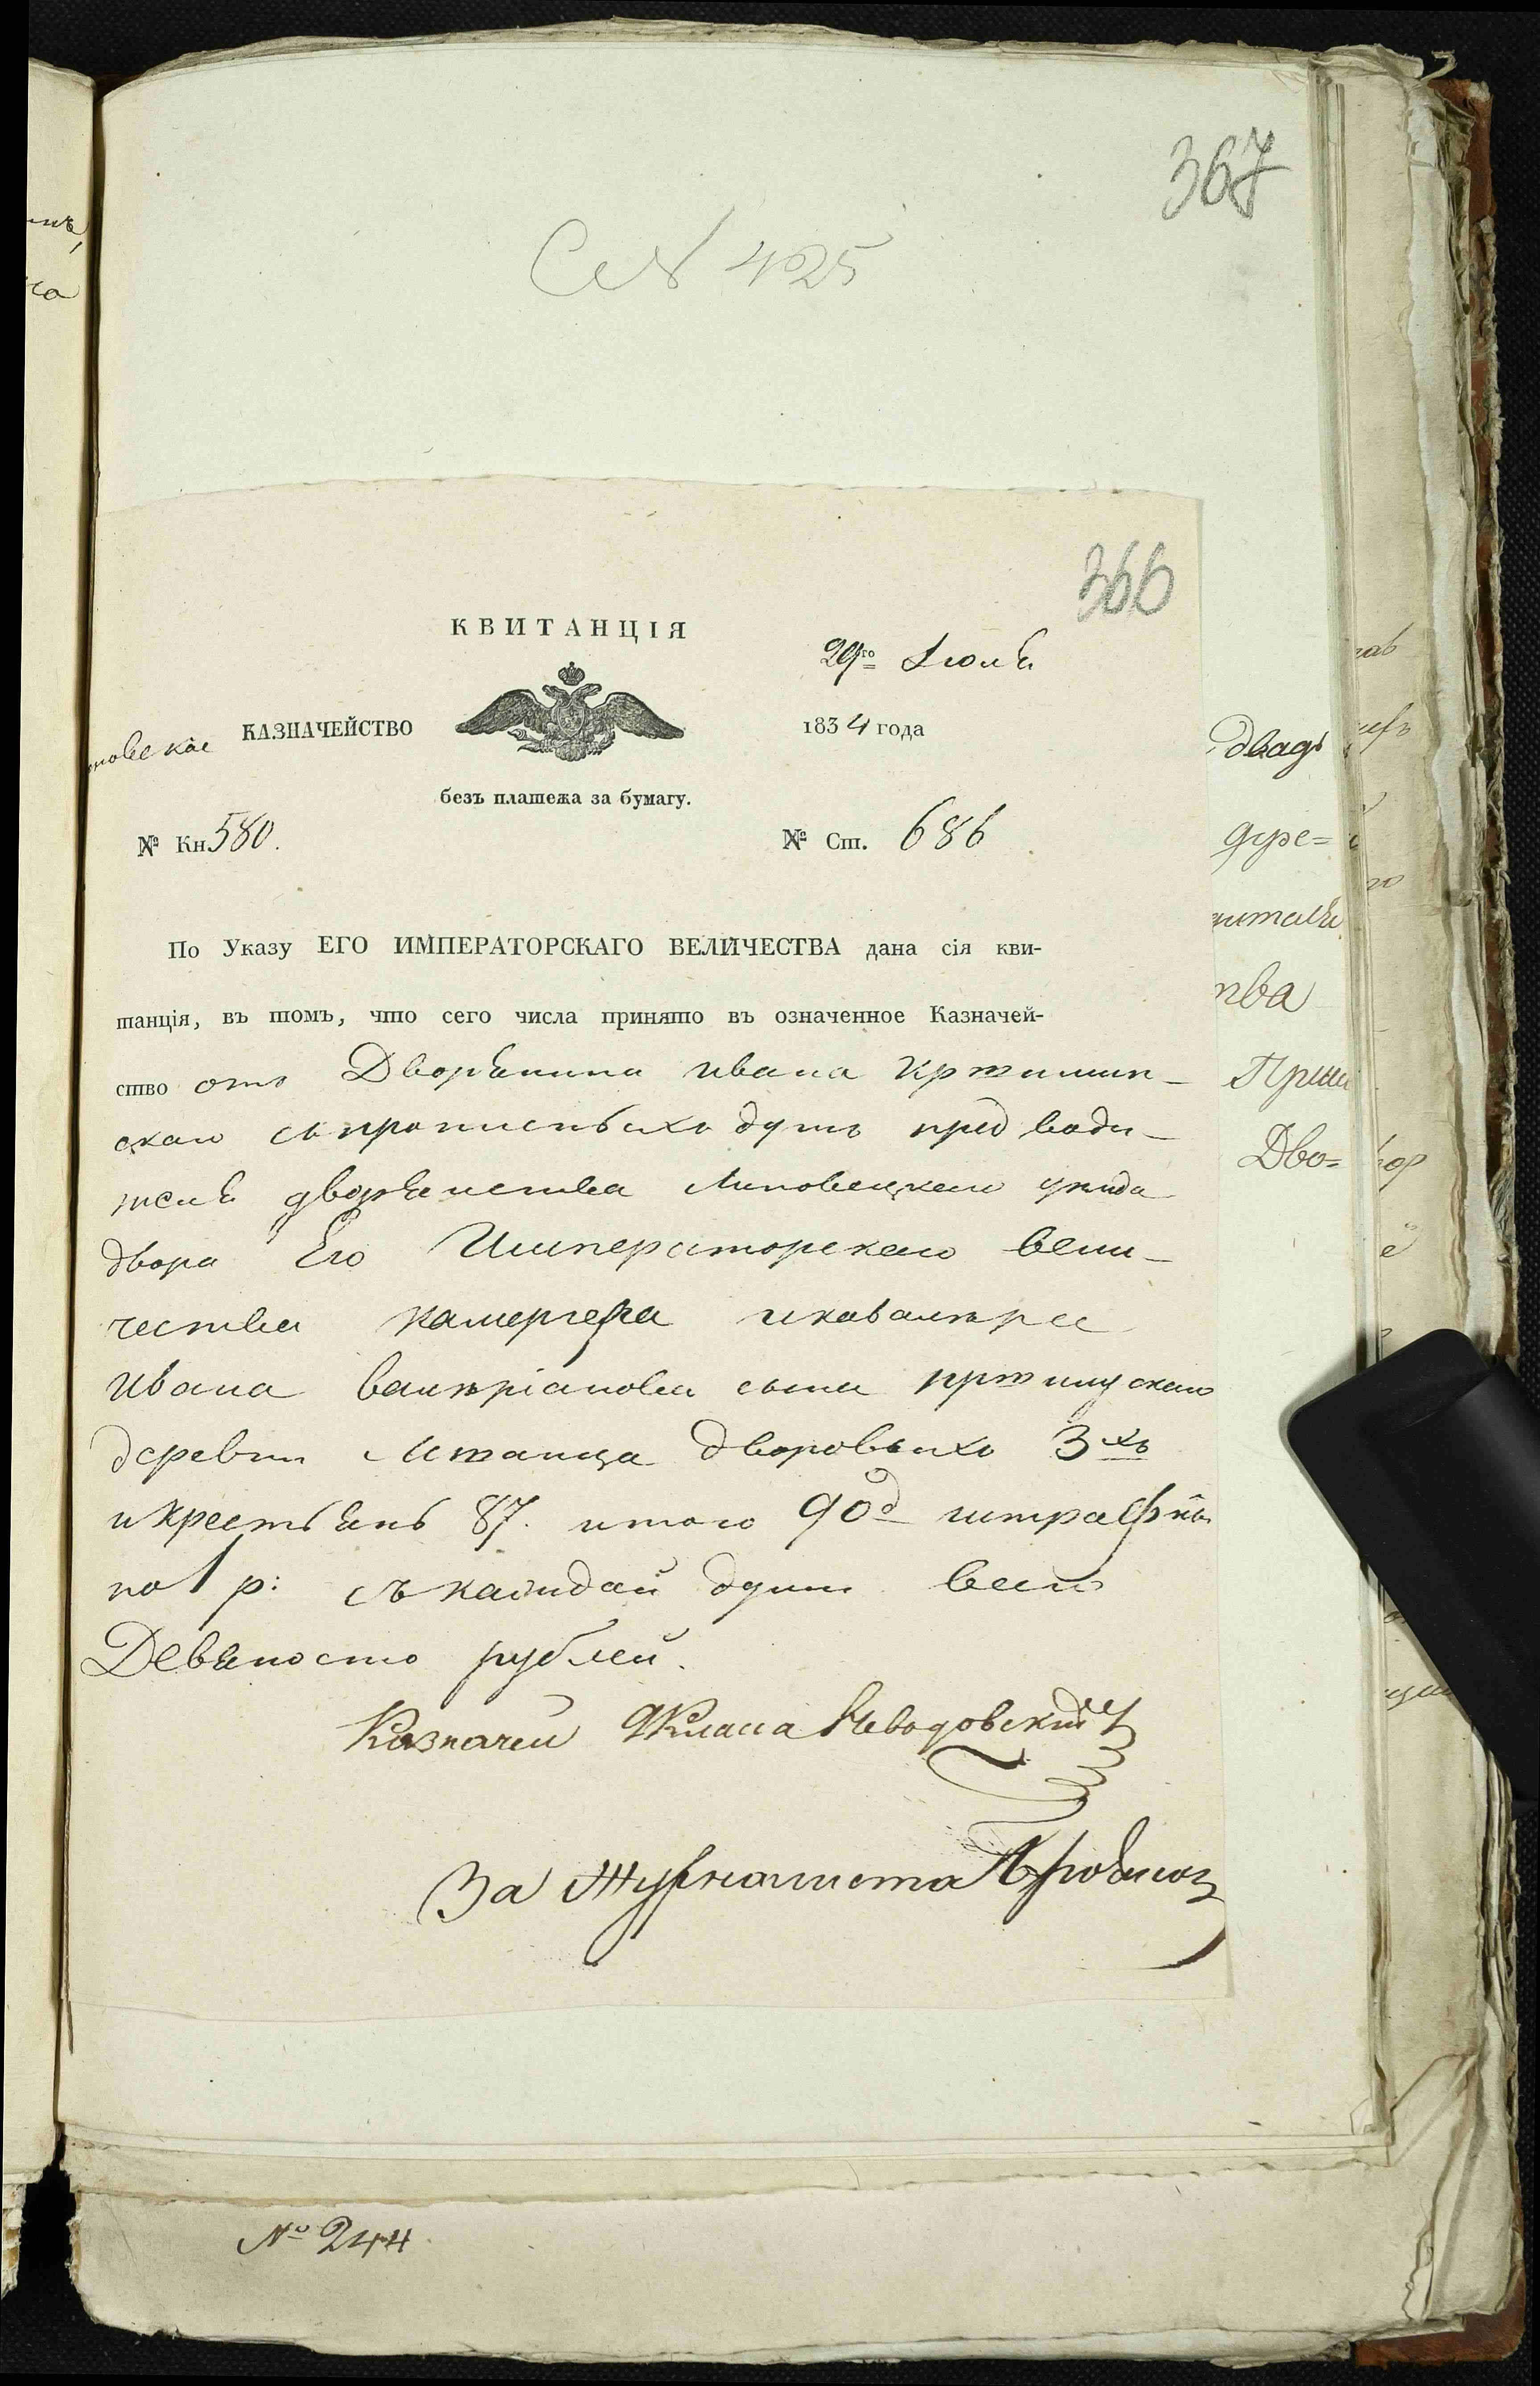 367
СN 425
366
КВИТАНЦІЯ
29го Іюля
КАЗНАЧЕЙСТВО
1834 года
безъ платежа за бумагу.
№ Кн 580.
№ Ст. 686
По Указу ЕГО ИМПЕРАТОРСКАГО ВЕЛИЧЕСТВА дана сія кви-
танція, въ томъ, что сего числа принято въ означенное Казначей-
ство отъ Дворянина Ивана
душъ предводи-
теля дворянства Липовецкаго уезда
двора Его Императорскаго вели-
чества камергера икавалера
Ивана валеріанова сына
деревни дворовыхъ 3хъ
икрестьянъ 87. итого 90д штрафныхъ
по 1 р: съкаждой души всего
Девяносто рублей.
Казначей 9Класса
За Журналиста
двадъ
Дво=
№ 244